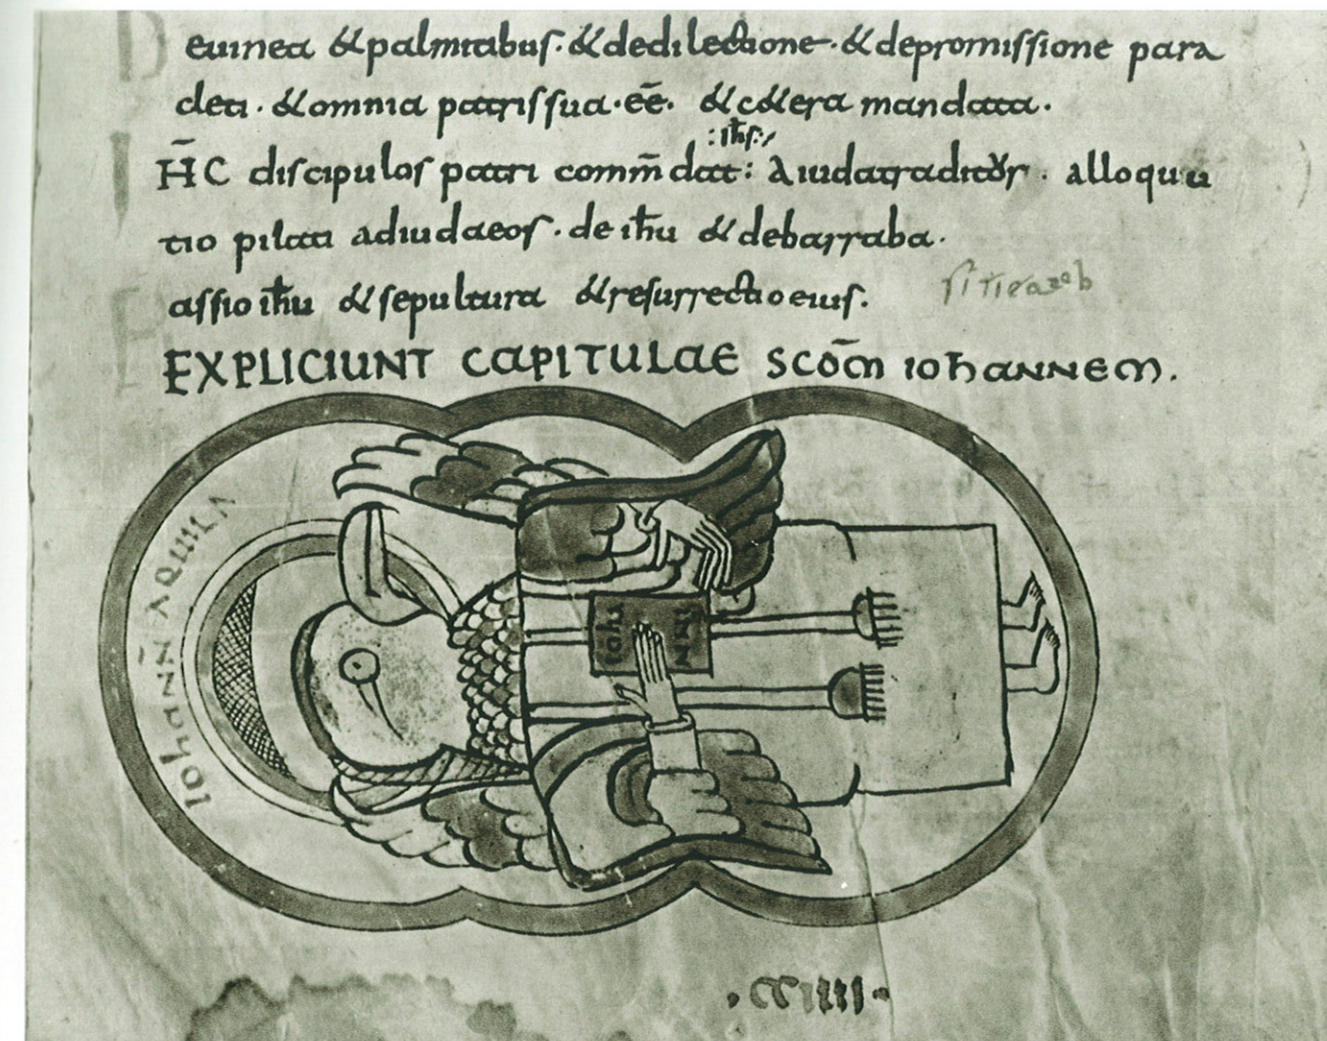 D euinea & palmitabus. & dedilectione. & depromissione para
cleti. & omnia patris sua. eē. & cetera mandata.
:ih̄s:
H̄C discipulos patri comm̄dat: A iudatraditor. alloquu
tio pilati adiudaeos. de ih̄u & debarraba.
P assio ih̄u & sepultura & resurrectio eius.
EXPLICIUNT CAPITULAE SCŌM IOHANNEM.
IOHANN̄ AQUILA